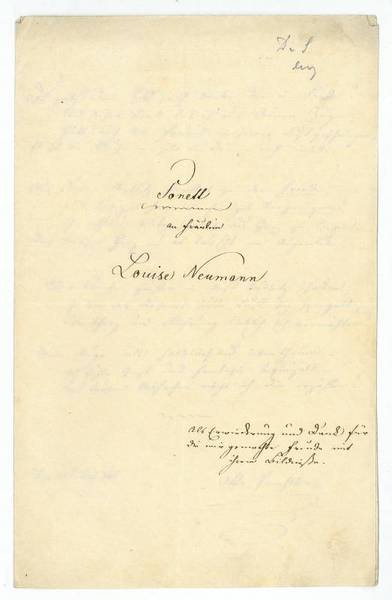 Sonett
an Fräulein
Louise Neumann
Als Erwiederung und Dank für
die mir gemachte Freude mit
ihrem Bildniße.